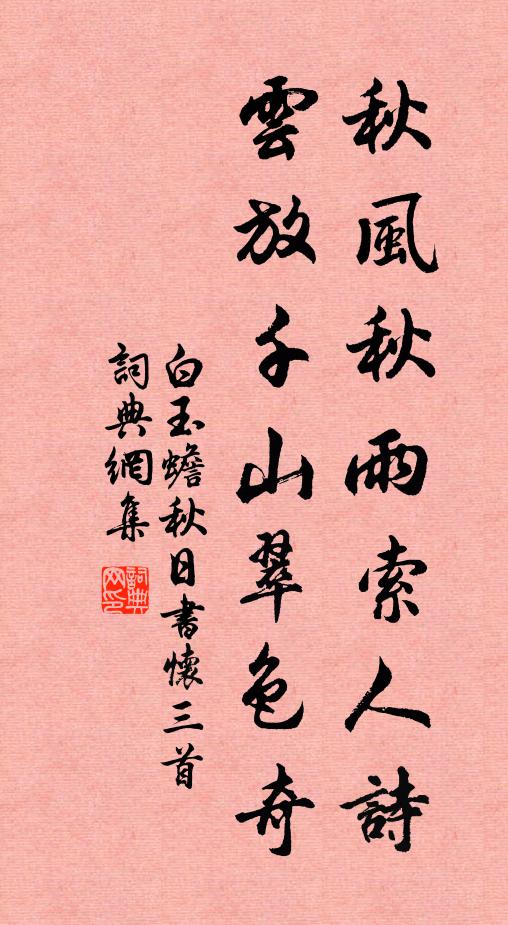 秋風秋雨索人詩
雲放千山翠色奇
白玉蟾秋日書懷三首
詞典網集
詞典网印